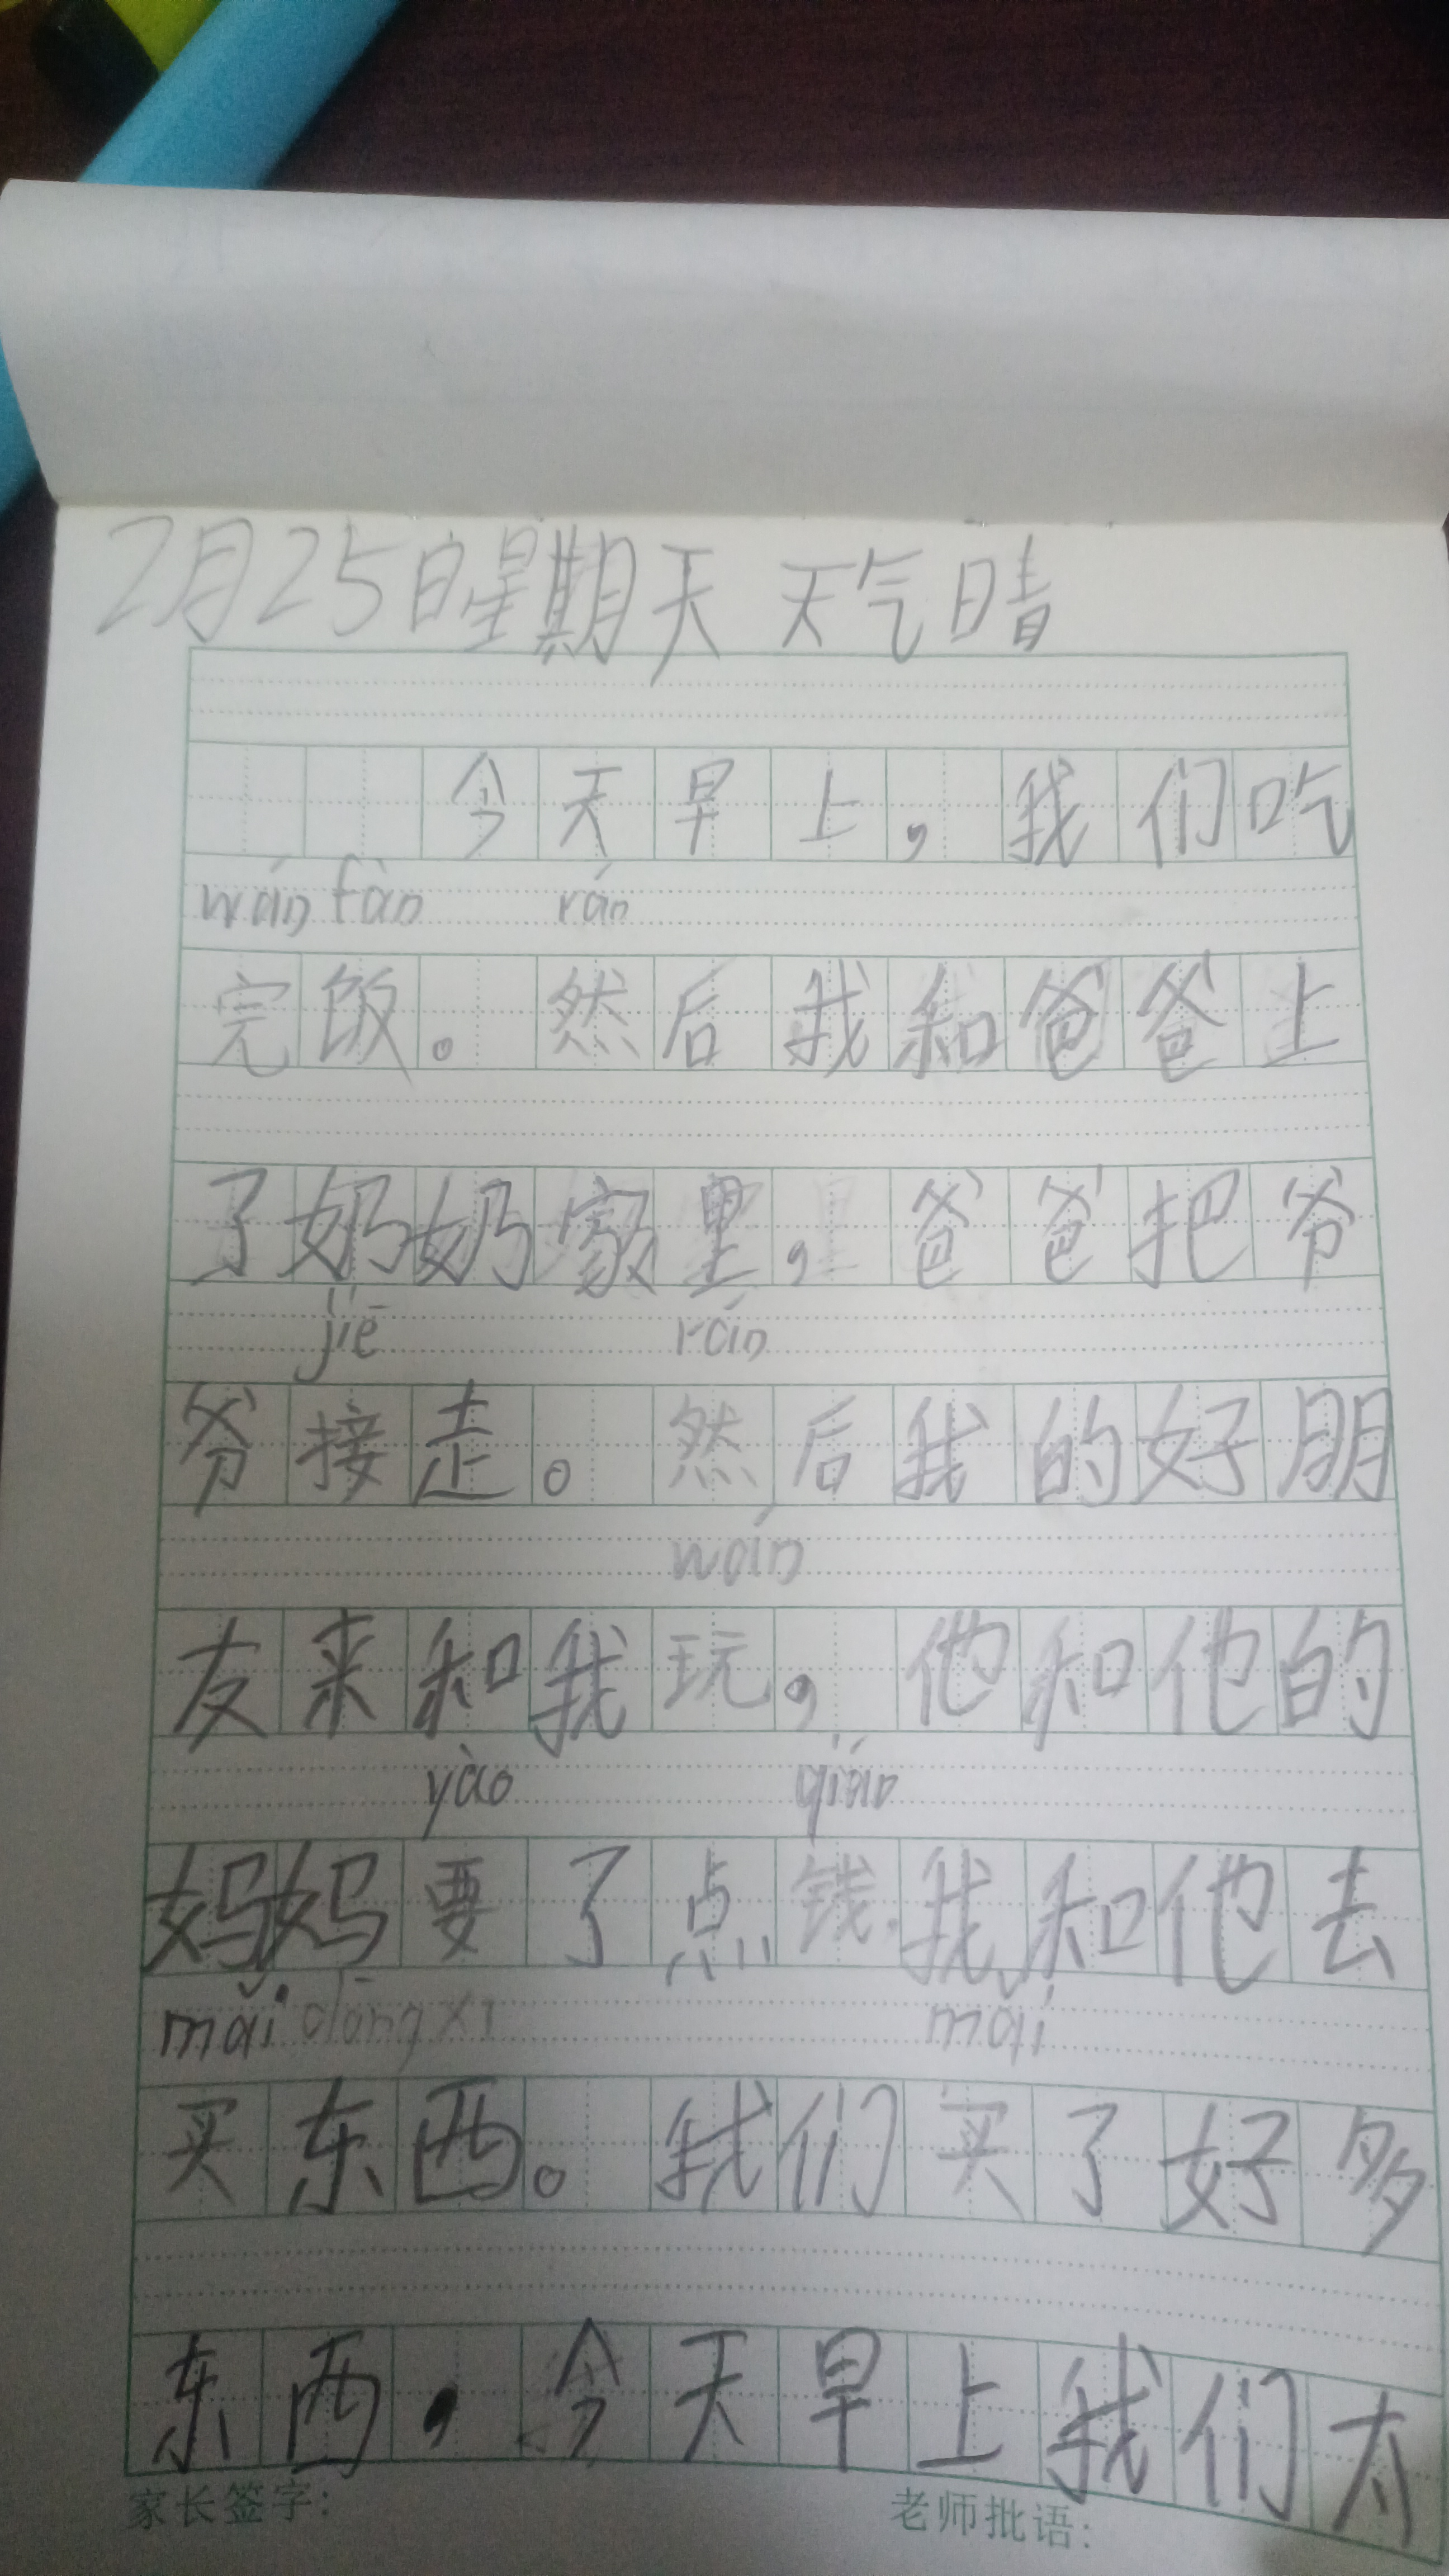 2月25日星期天 天气晴
今天早上，我们吃
wán fàn rán
完饭。然后我和爸爸上
了奶奶家里，爸爸把爷
jiē rán
爷接走。然后我的好朋
wán
友来和我玩，他和他的
yào qián
妈妈要了点钱，我和他去
mǎi dōng xī mǎi
买东西。我们买了好多
东西，今天早上我们太
家长签字： 老师批语：